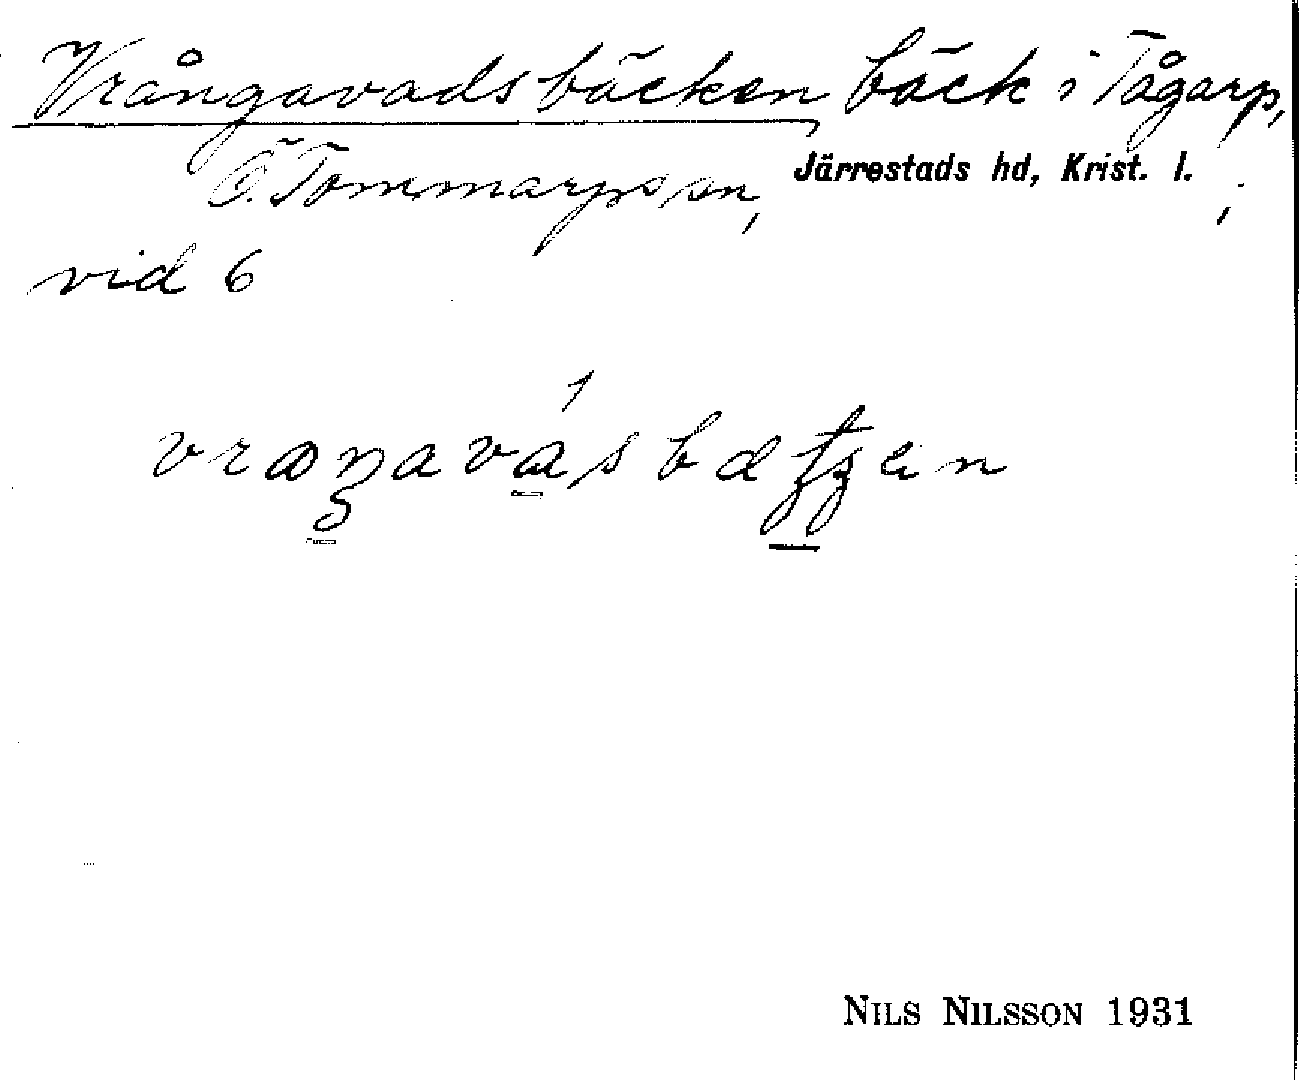 Vrångavadsbäcken bäck i Tågarp,
Ö. Tommarps sn, Järrestads hd, Krist. l. ;
vid 6
NILS NILSSON 1931